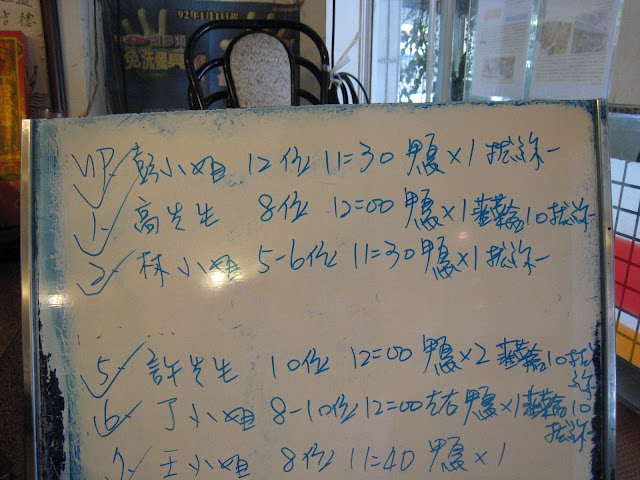 92年1月1日起
免洗餐具
VIP 彭小姐 12位 11=30 鴨×1
1. 高先生 8位 12=00 鴨×1 10
2. 林小姐 5-6位 11=30 鴨×1
5. 許先生 10位 12=00 鴨×2 10
6. 丁小姐 8-10位 12=00左右 鴨×1 10
7. 王小姐 8位 11=40 鴨×1